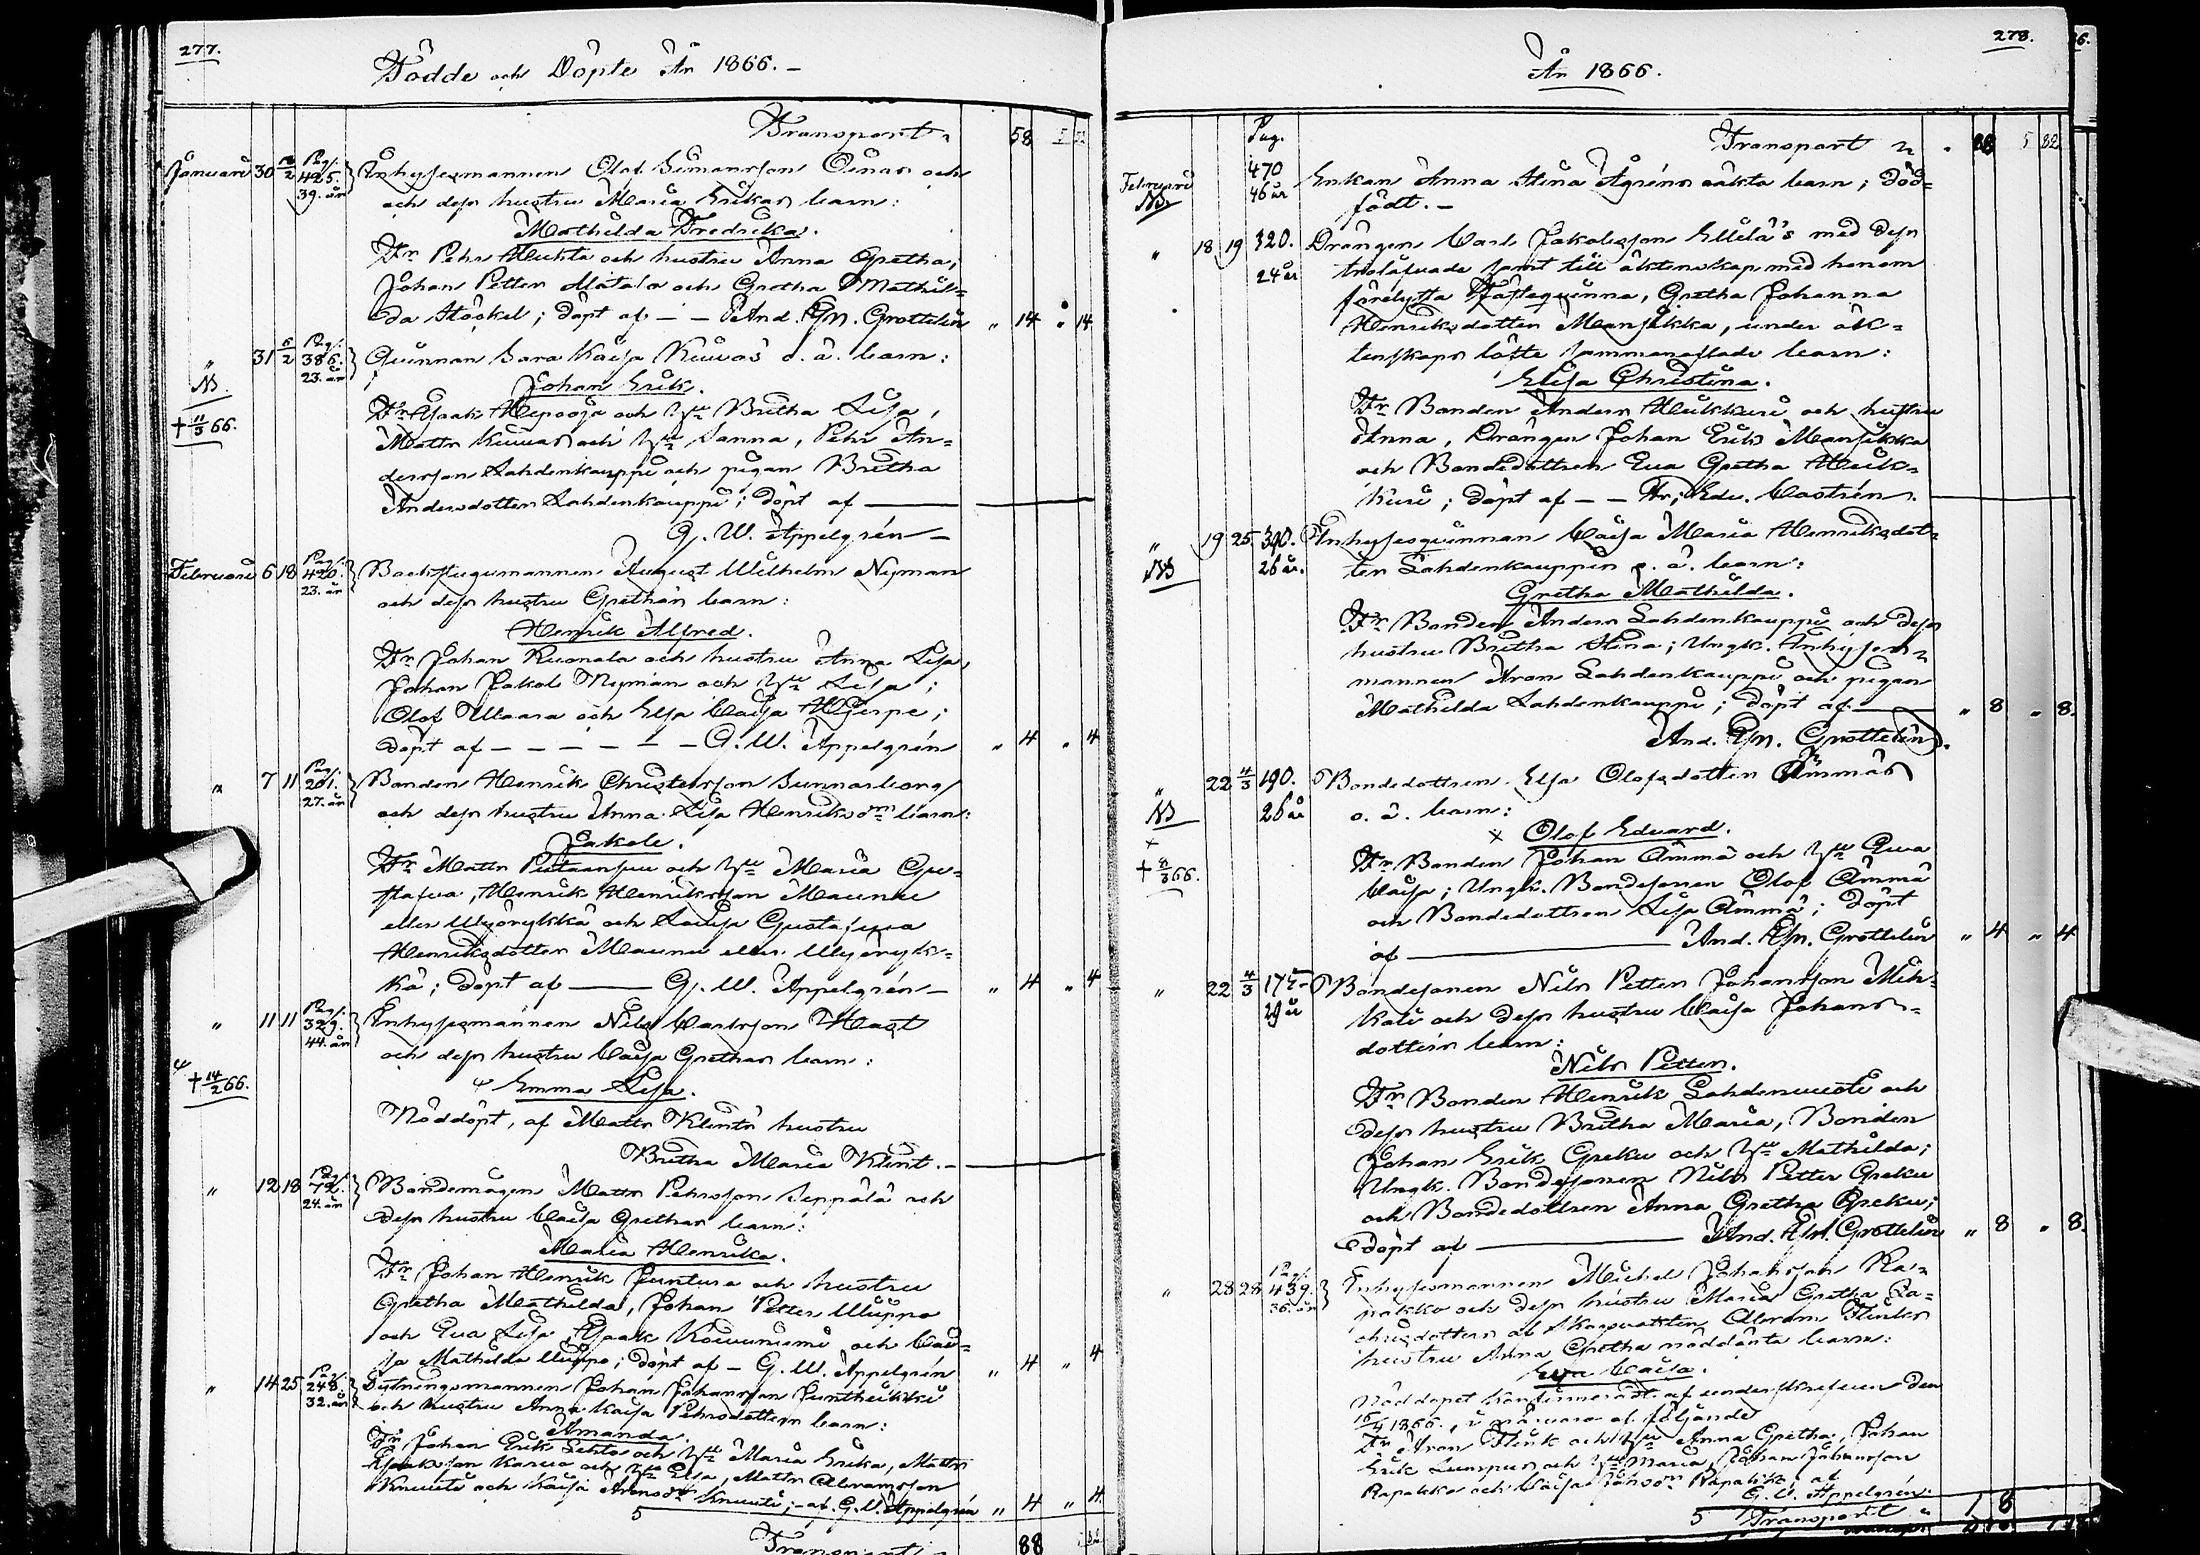 277.
Födde och Döpte År 1866. –
Transport
58
Januari 30 Pag. 425. 39. år Inhysesmannen Olof Simonsson Oinas och
och dess hustru Maria Erikas barn:
Mathilda Fredrika.
Fr Pehr Huhta och hustru Anna Gretha,
Johan Petter Matala och Gretha Mathil=
da Stöckel; döpt af – – And. Gr. Grottelin " 14 " 14
" 31 5/2 Pag. 386. 23. år Quinnan Sara Kaisa Kuivas o. ä. barn:
NB.
Johan Erik.
† 11/3 66.
Fr Isaak Hepooja och Hu Britha Lisa,
Matts Kuivas och Hu Sanna, Pehr An=
dersson Lahdenkauppi och pigan Britha
Andersdotter Lahdenkauppi; döpt af
G. W. Appelgrén –
Februari 6 18 Pag. 420. 23. år Backstugumannen August Wilhelm Nyman
och dess hustru Grethas barn:
Henrik Alfred.
Fr Johan Ruonala och hustru Anna Lisa,
Johan Jakob Nyman och Hu Lisa;
Olof Ulaara och Elsa Caisa Hjerpe;
döpt af – – – – – – G. W. Appelgrén " 4 " 4
" 7 11 Pag. 201. 27. år Bonden Henrik Christersson Sunnarborg
och dess hustru Anna Lisa Henriksdrs barn:
Jakob.
Fr Matts Pietaanpuu och Hu Maria Gu=
stafva, Henrik Henriksson Maunu
eller och Gustafva
Henriksdotter Maunu eller
kä; döpt af —— G. W. Appelgrén – " 4 " 4
" 11 11 Pag. 329. 44. år Inhysesmannen Nils Carlsson Hast
och dess hustru Caisa Grethas barn:
† 14/2 66.
Emma Lisa.
Nöddöpt, af Matts Klints hustru
Britha Maria Klint. –
" 12 18 Pag. 72. 24. år Bondemågen Matts Pehrsson Seppälä och
dess hustru Caisa Grethas barn:
Maria Henrika.
Fr Johan Henrik Juntura och hustru
Gretha Mathilda, Johan Petter Uuppo
och Eva Lisa, Isaak Koivuniemi och Cai=
sa Mathilda Uuppo; döpt af – G. W. Appelgrén " 4 " 4
" 14 25 Pag. 248. 32. år Sytningsmannen Johan Johansson Juntheikki
och hustru Anna Kaisa Pehrsdotters barn:
Amanda.
Fr Johan Erik Lehto och Hu Maria Erika, Matts
Isaaksson Karvo och Hu Elsa, Matts Abramsson
Knuuti och Kaisa Aronsdr Knuuti; – af. G. W. Appelgrén " 4 " 4
5
Transport 88
278.
År 1866.
Pag.
Transport 88 5 82
Februari 470 46 år Enkan Anna Stina Ågréns oäkta barn; död=
NB.
födt. –
" 18 19 320. 24 år Drängen Carl Jakobsson Ellilä's med dess
trolåfvade samt till äktenskap med honom
förelysta Fästequinna, Gretha Johanna
Henriksdotter Mansikka, under äk=
tenskaps löfte sammanaflade barn:
Elisa Christina.
Fr Bonden Anders Heikkuri och hustru
Anna, Drängen Johan Erik Mansikka
och Bondedottren Eva Gretha Heik=
kuri; döpt af – – Fr. Edv. Castrén.
" 19 25. 390. 26 år. Inhysesquinnan Caisa Maria Henriksdot=
NB
ter Lahdenkauppis o. ä. barn:
Gretha Mathilda.
Fr Bonden Anders Lahdenkauppi och dess
hustru Britha Stina; Ungk. Inhyses=
mannen Aron Lahdenkauppi och pigan
Mathilda Lahdenkauppi; döpt af —— " 8 " 8.
And. Gr. Grottelin.
" 22 4/3 190. 26 år Bondedottren Elsa Olofsdotter Ämmäs
NB
o. ä. barn:
× Olof Edvard.
×
Fr Bonden Johan Ämmä och Hu Eva
† 8/3 66.
Caisa; Ungk. Bondesonen Olof Ämmä
och Bondedottren Lisa Ämmä; döpt
af —— And. Gr. Grottelin " 4 " 4
" 22 4/3 29 år Bondesonen Nils Petter Johansson Mik=
kali och dess hustru Caisa Johans=
dotters barn:
Nils Petter.
Fr Bonden Henrik Lahdenvuoti och
dess hustru Britha Maria, Bonden
Johan Erik Greku och Hu Mathilda;
Ungk. Bondesonen Nils Petter Greku
och Bondedottren Anna Gretha Greku;
döpt af —— And. Gr. Grottelin " 8 " 8.
" 28 28 Pag. 439. 36. år Inhysesmannen Michel Johansson Ra=
pakko och dess hustru Maria Gretha Za=
chrisdotters af Abram Flinks
hustru Anna Gretha nöddöpta barn:
Eva Caisa.
Nöddopet konfirmeradt af undertecknad den
1866, i närvaro af följande
Fr Aron Flink och Hu Anna Gretha, Johan
Erik och Hu Maria, Johan Johansson
Rapakko och Caisa Rapakko; af
G. W. Appelgrén.
5 Transport